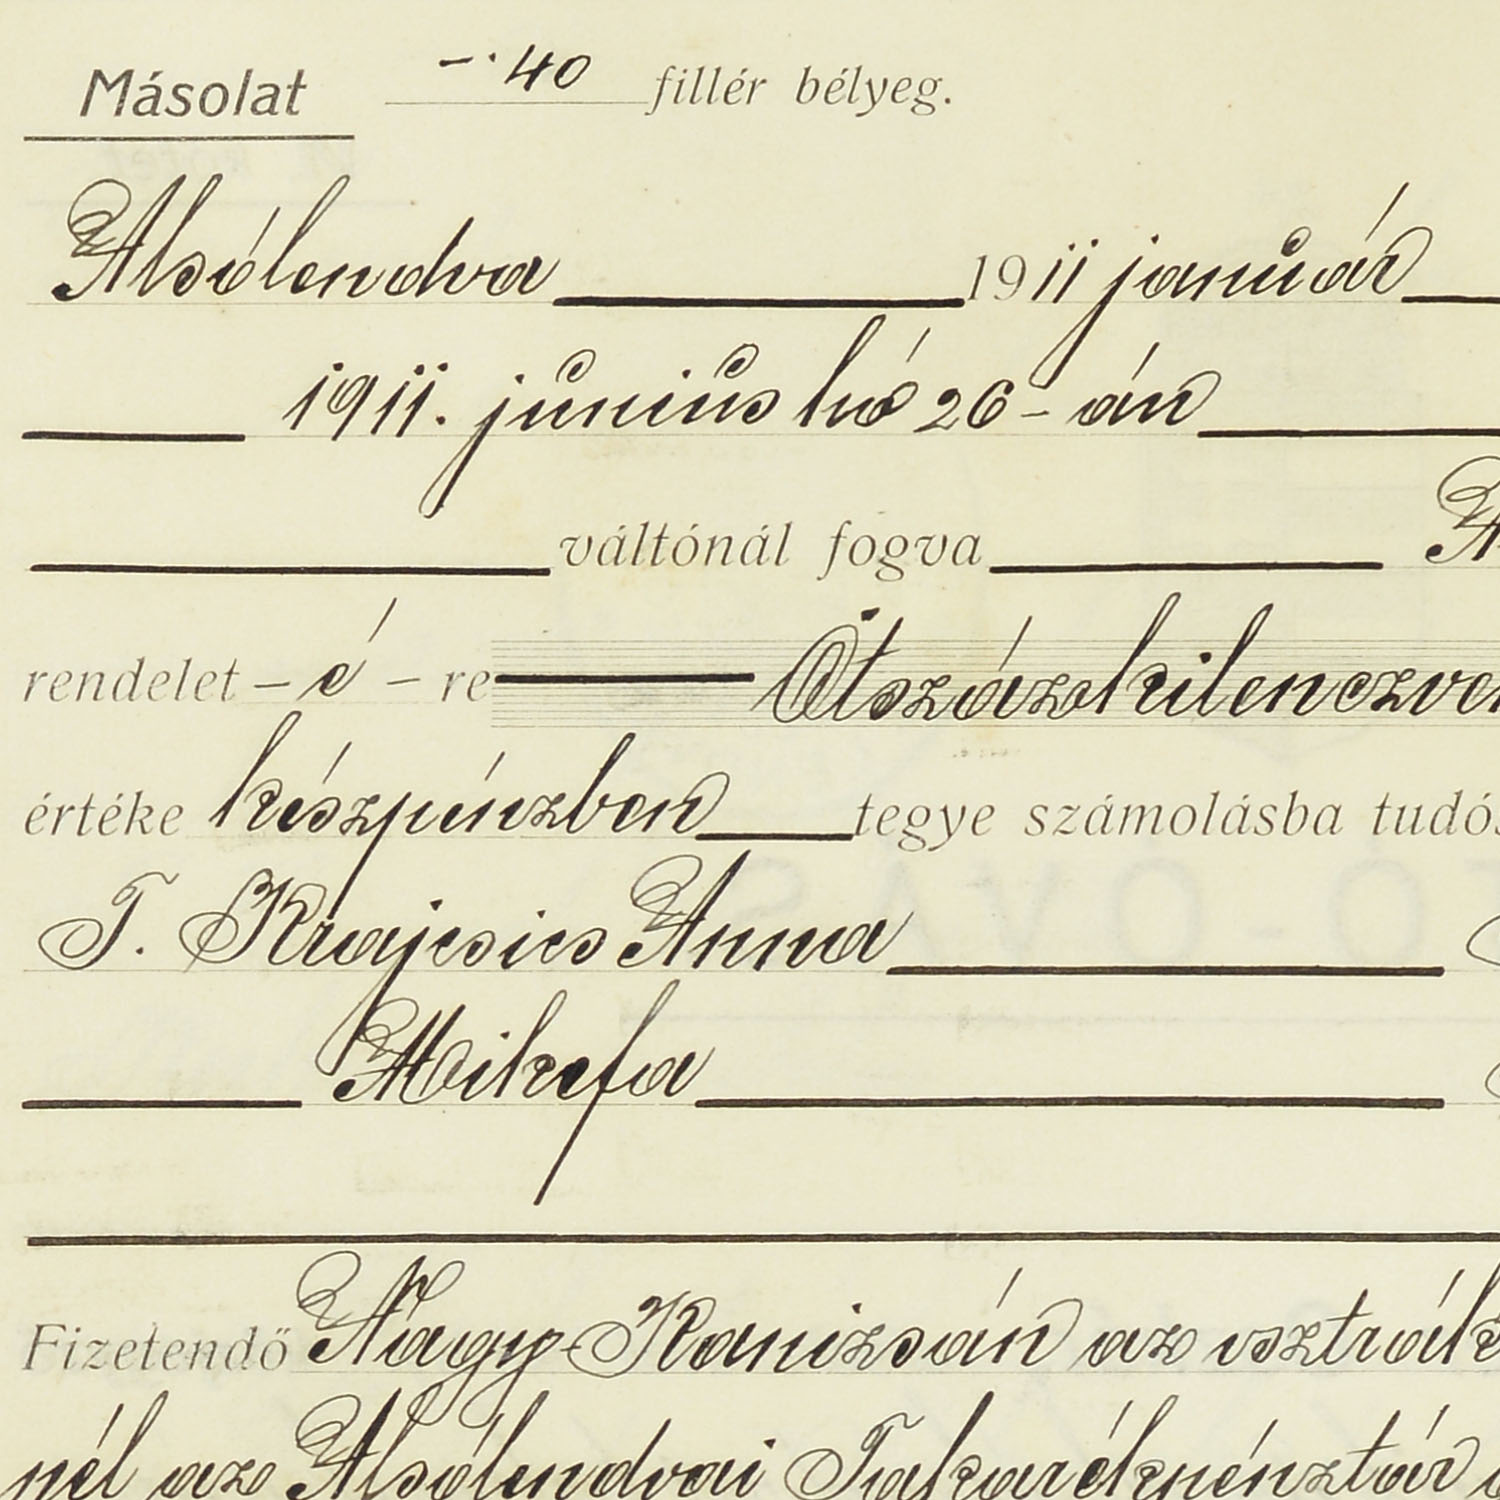 Másolat –·40 fillér bélyeg.
Alsólendva 1911 január
1911. június hó 26 – án
váltónál fogva
rendelet – é – re Ötszázkilenczven
értéke készpénzben tegye számolásba tudós
T. Krajcsics Anna
Mikefa
Fizetendő Nagy-Kanizsán az osztrák
nél az Alsólendvai Takarékpénztár